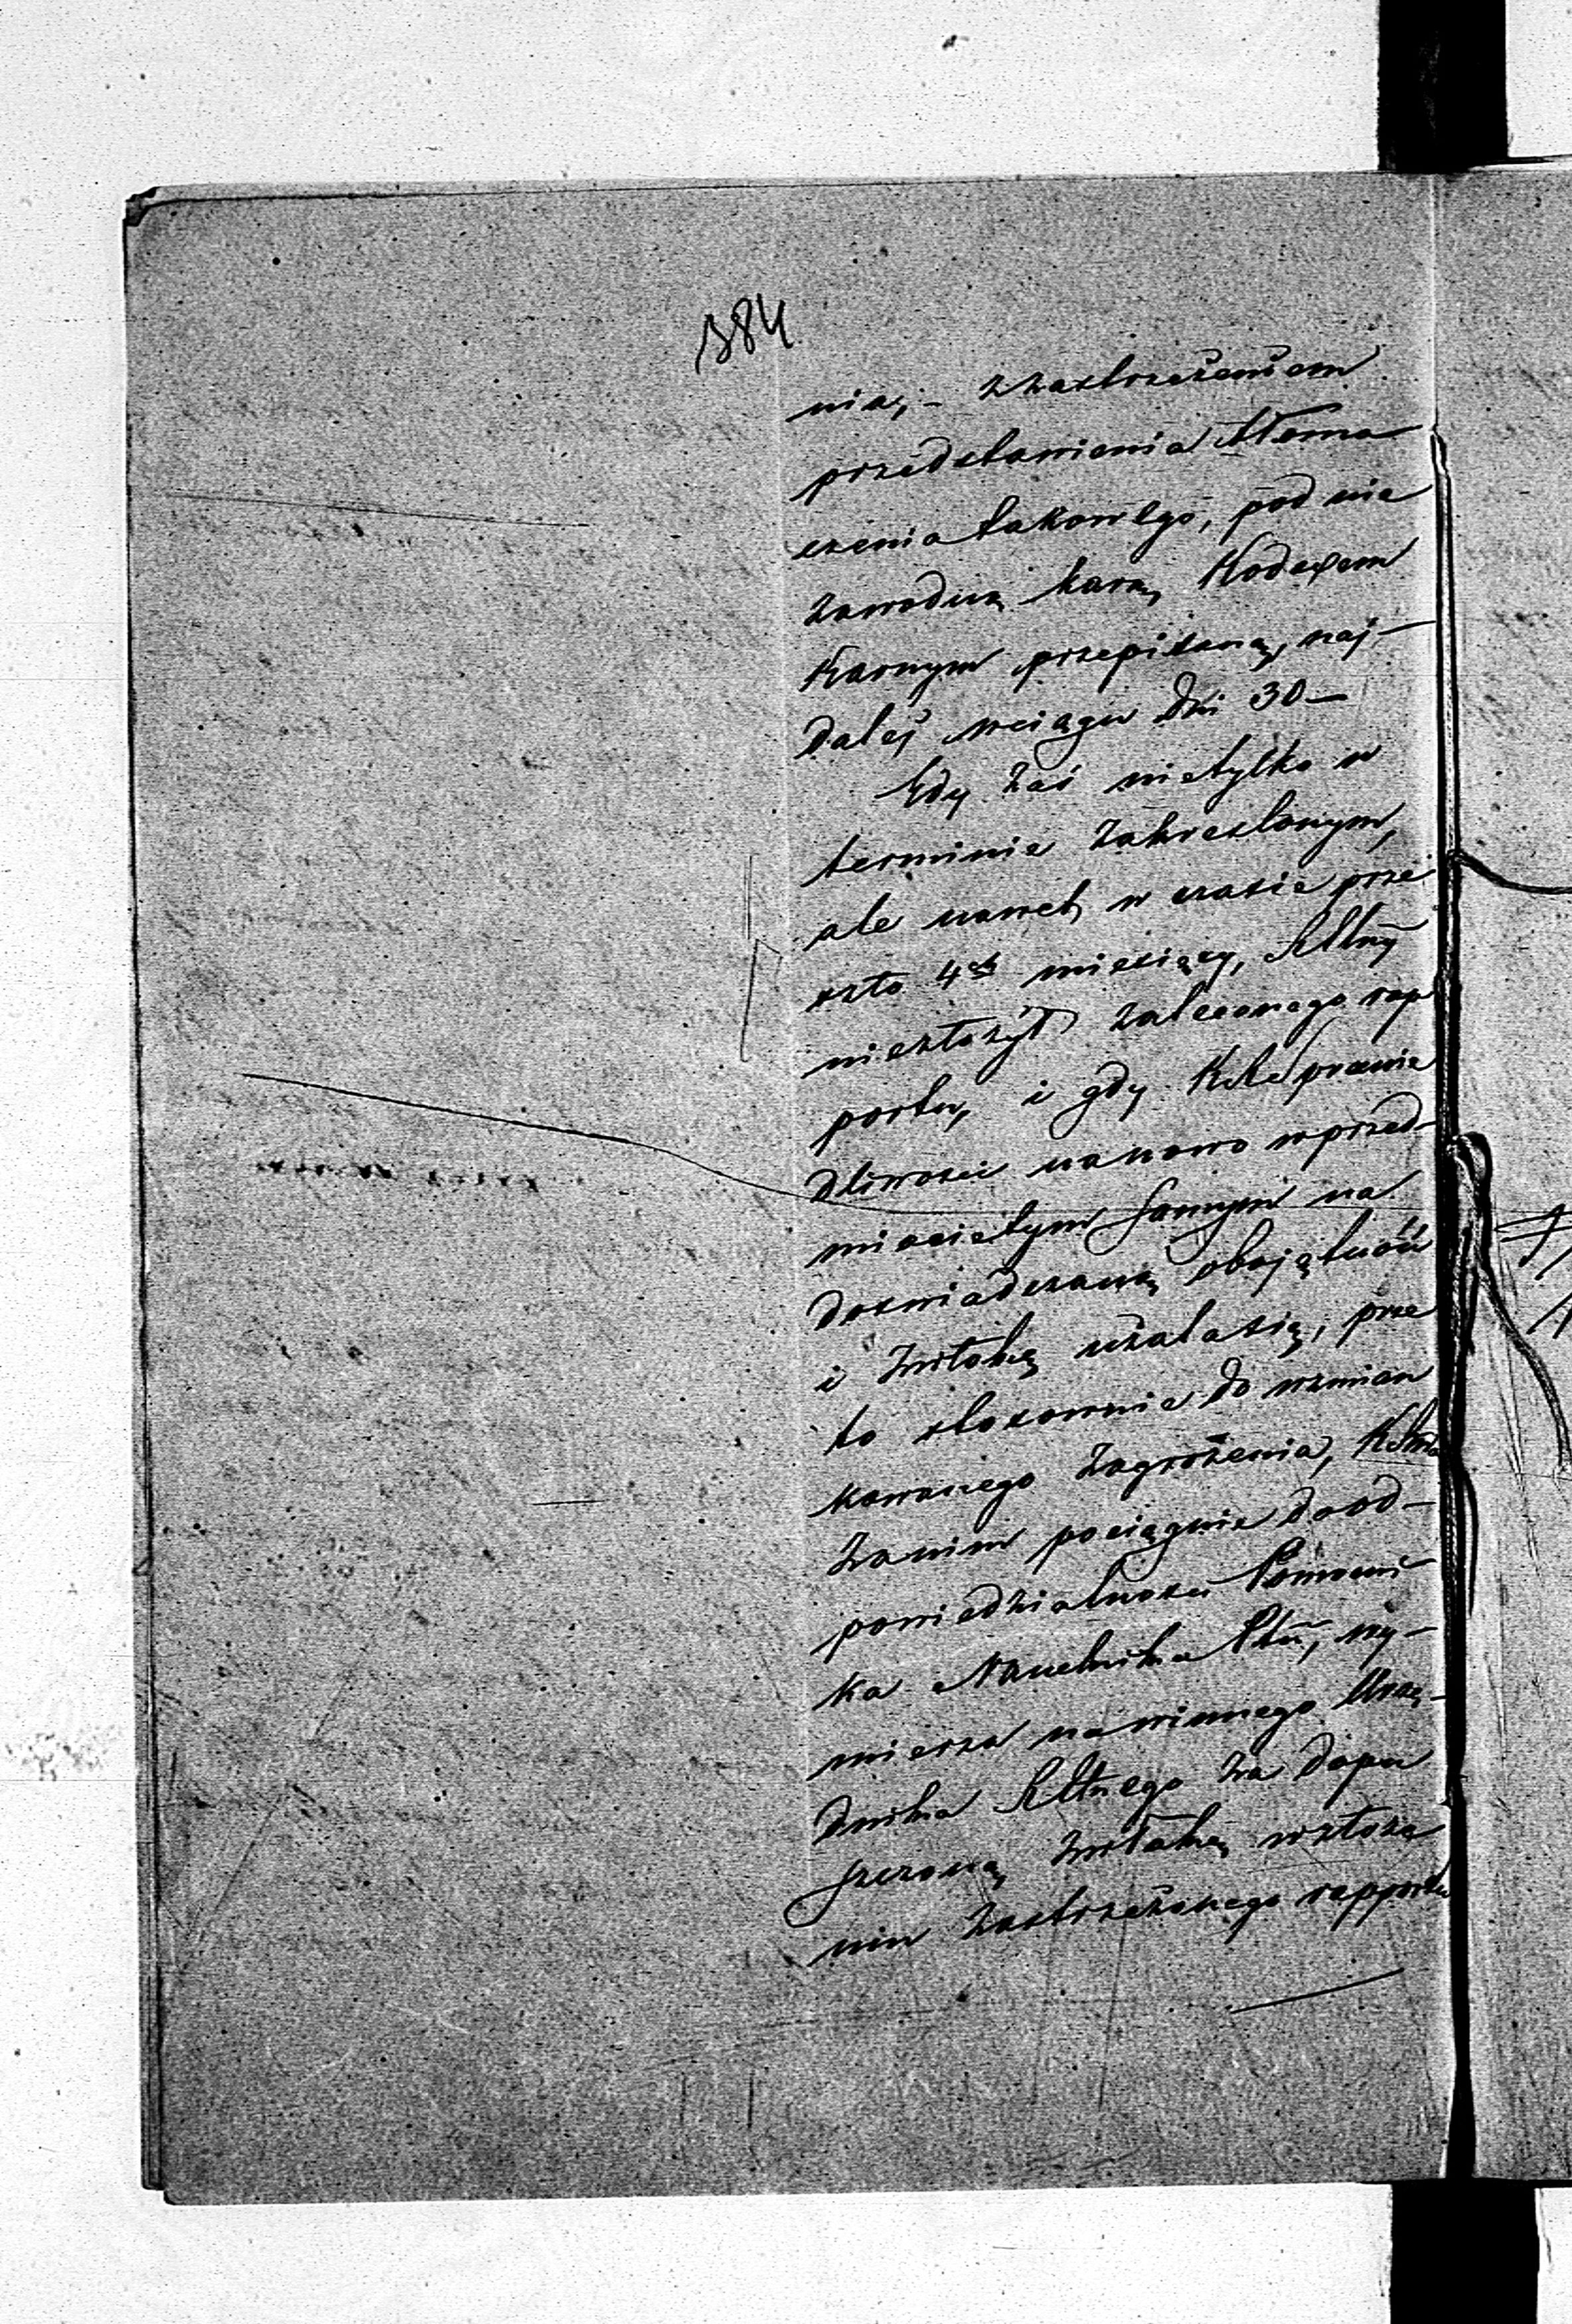 384
nia; – zzastrzeżeniem
przedstawienia tłoma
czenia takowego, pod nie
zawodną karą Kodexem
Karnym przepisaną, naj-
dalej wciągu dni 30 –
Gdy zaś nietylko w
terminie zakreslonym,
ale nawet w czasie prze
szło 4ch miesięcy,
niezłożył zaleconego rap
portu, i gdy prawie
dliwości nanowo wprzed-
miocietym samym na
doswiadczaną obojętność
i zwłokę użalasię, prze
to stosownie do wzmian
kowanego zagrożenia,
zanim pociągnie dood-
powiedzialnosci Pomocni
ka Naczelnika Ptu, wy-
mierza nawinnego Urzę-
dnika za dopu
szczoną zwłokę wzłoże
niu zastrzeżonego rapportu